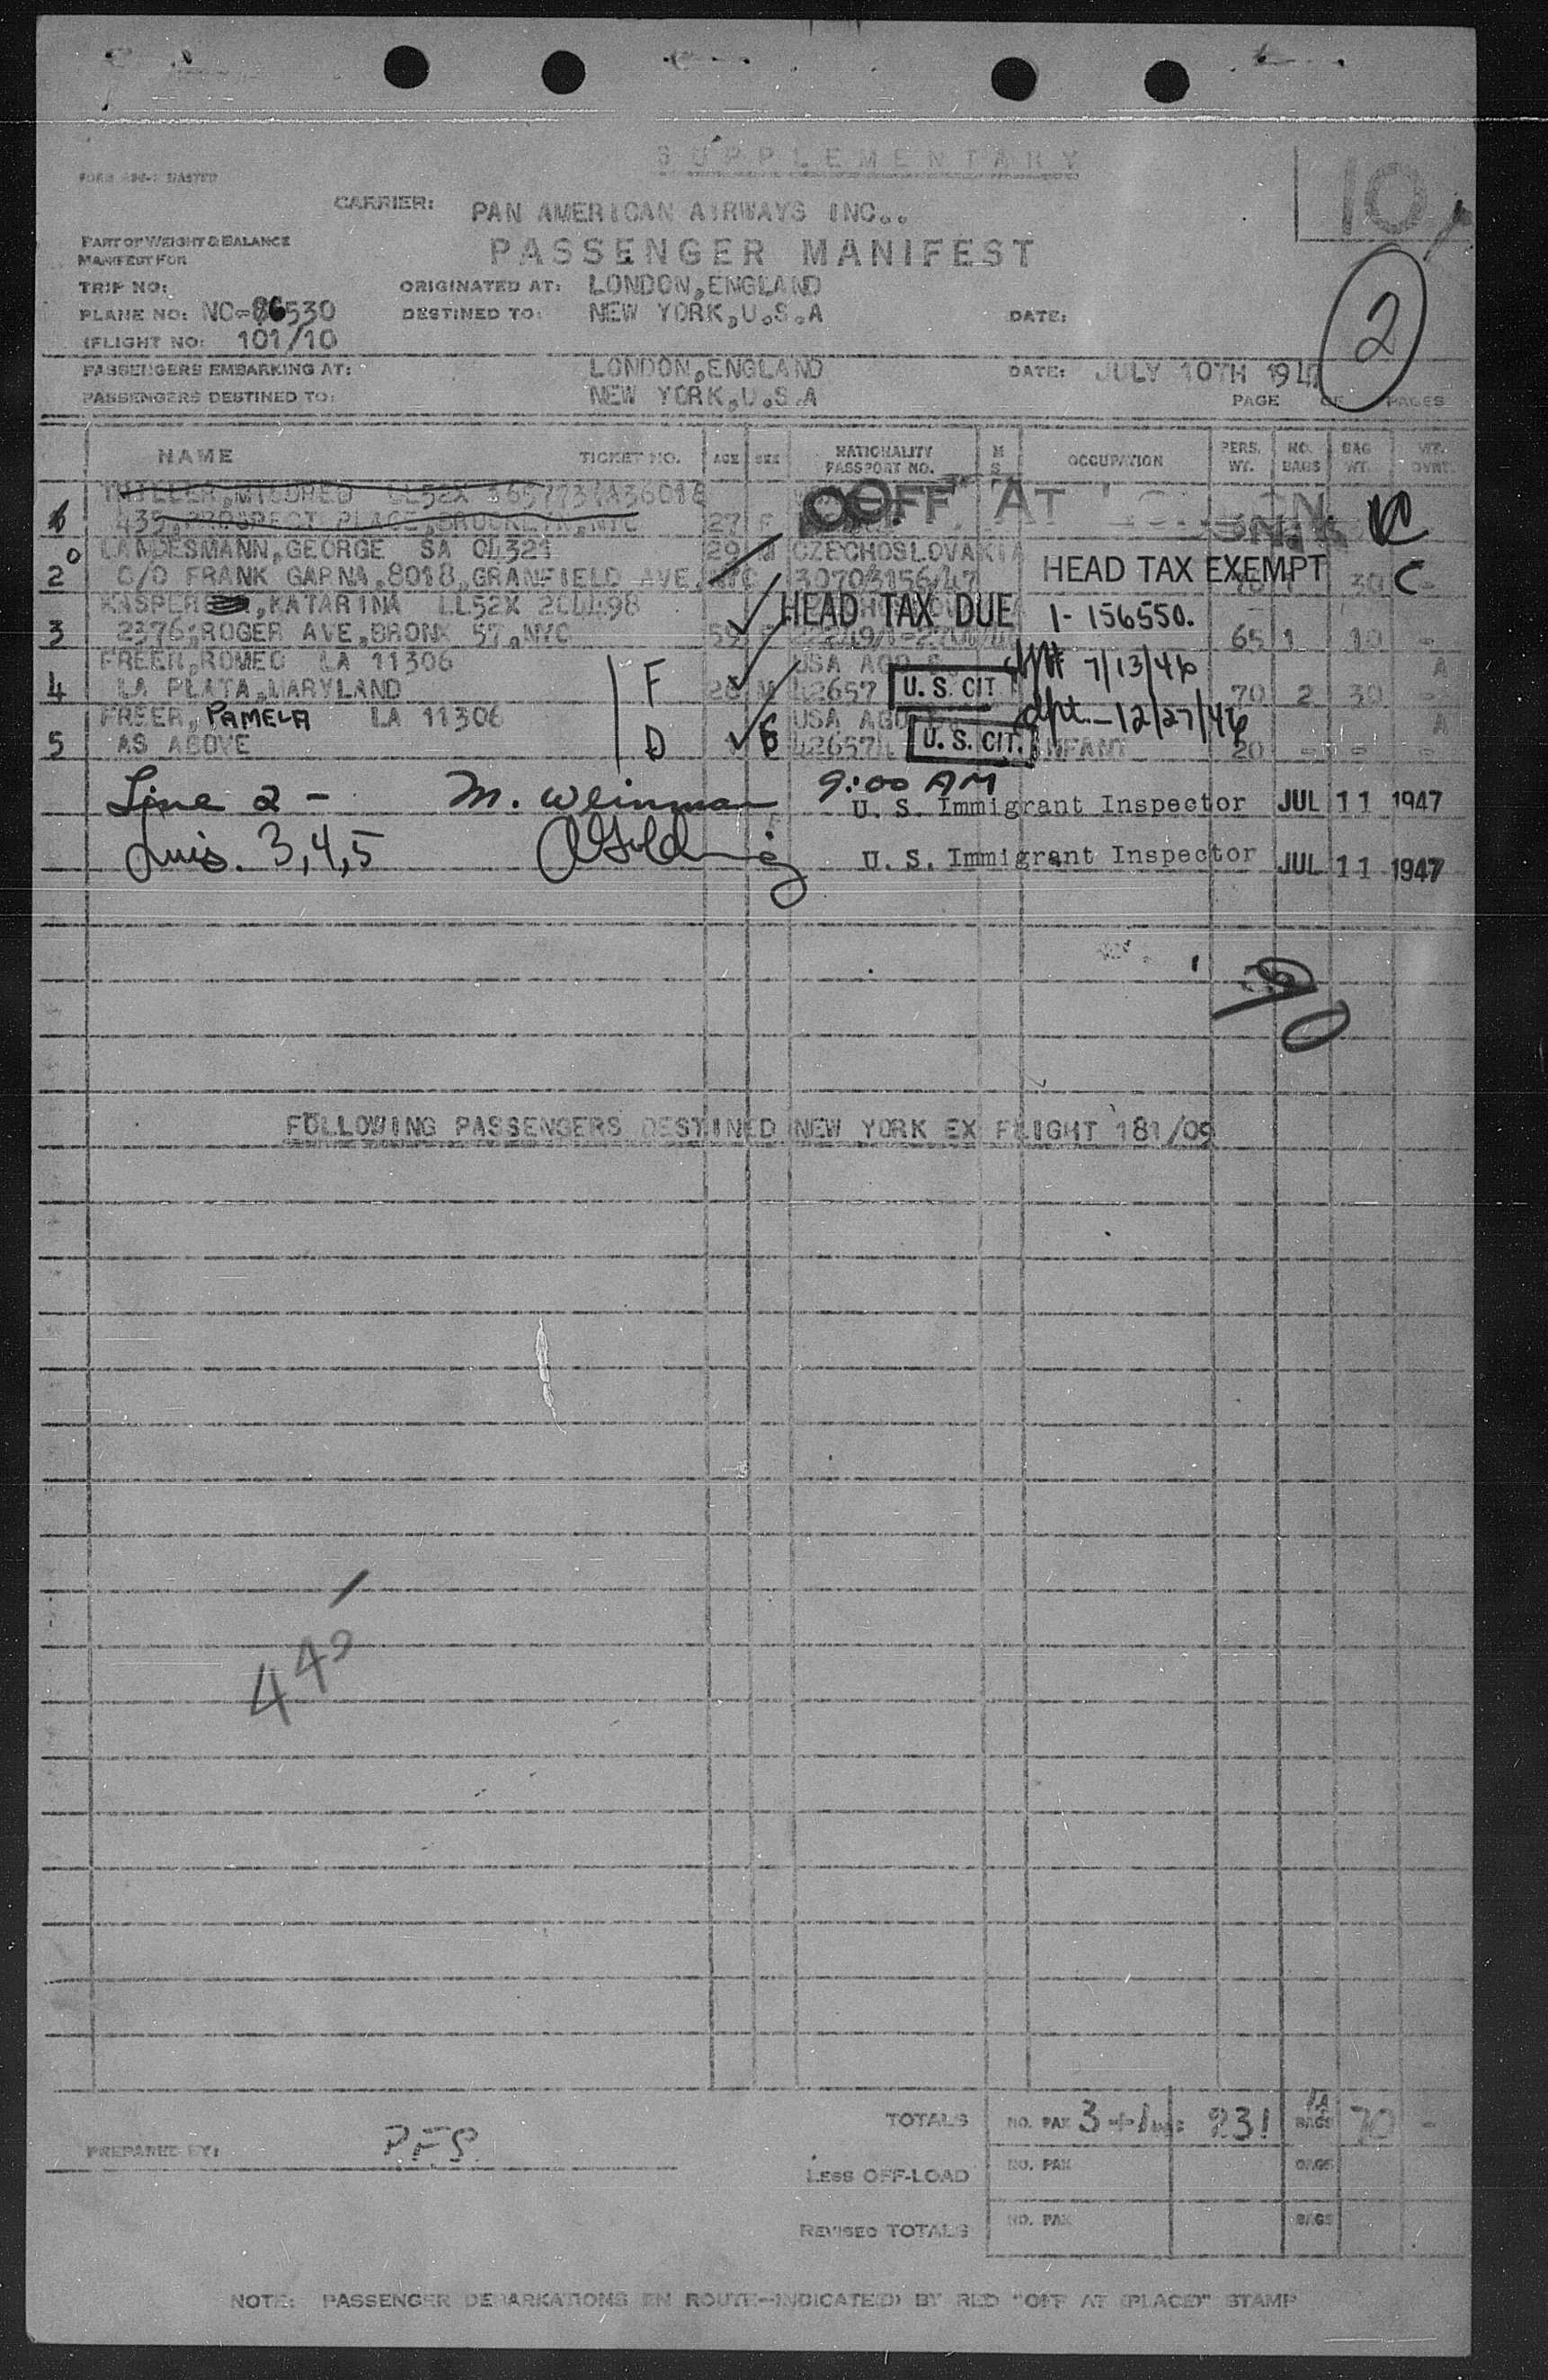 SUPPLEMENTARY
10
CARRIER: PAN AMERICAN AIRWAYS INC..
PART OF WEIGHT & BALANCE
MANIFEST FOR
PASSENGER MANIFEST
2
TRIP NO: ORIGINATED AT: LONDON,ENGLAND
PLANE NO: NC-86530 DESTINED TO: NEW YORK,U.S.A DATE:
(FLIGHT NO: 101/10
PASSENGERS EMBARKING AT: LONDON,ENGLAND DATE: JULY 10TH 1947
PASSENGERS DESTINED TO: NEW YORK,U.S.A PAGE OF PAGES
NAME TICKET NO. AGE SEX NATIONALITY PASSPORT NO. M S OCCUPATION PERS. WT. NO. BAGS BAG WT.
MILDRED LL52X
OFF AT
435,PROSPECT PLACE,BROOKLYN,NYC 27 F
LANDESMANN,GEORGE SA 04321 29 M CZECHOSLOVAKIA
2 C/O FRANK GARNA,8018,GRANFIELD AVE,NYC HEAD TAX EXEMPT 30 C -
KASPER, KATARINA LL52X 204498 HEAD TAX DUE 1-156550.
3 2376,ROGER AVE,BRONX 57,NYC 59 F 65 1 10 -
FREER,ROMEO LA 11306 USA AGO 7/13/46 A
4 LA PLATA,MARYLAND F 28 M 42657 U. S. CIT. 70 2 30 -
FREER, PAMELA LA 11306 USA AGO dpt.-12/27/46 A
5 AS ABOVE D U. S. CIT. INFANT 20 - - -
Line 2 - M. Weinman 9:00 AM U. S. Immigrant Inspector JUL 11 1947
Lines. 3,4,5 U. S. Immigrant Inspector JUL 11 1947
FOLLOWING PASSENGERS DESTINED NEW YORK EX FLIGHT 181/09
TOTALS NO. PAX 3+1 231 BAGS 70 -
PREPARED BY: PFS
LESS OFF-LOAD NO. PAX BAGS
REVISED TOTALS NO. PAX BAGS
NOTE: PASSENGER DEBARKATIONS EN ROUTE-INDICATE(D) BY RED "OFF AT (PLACE)" STAMP